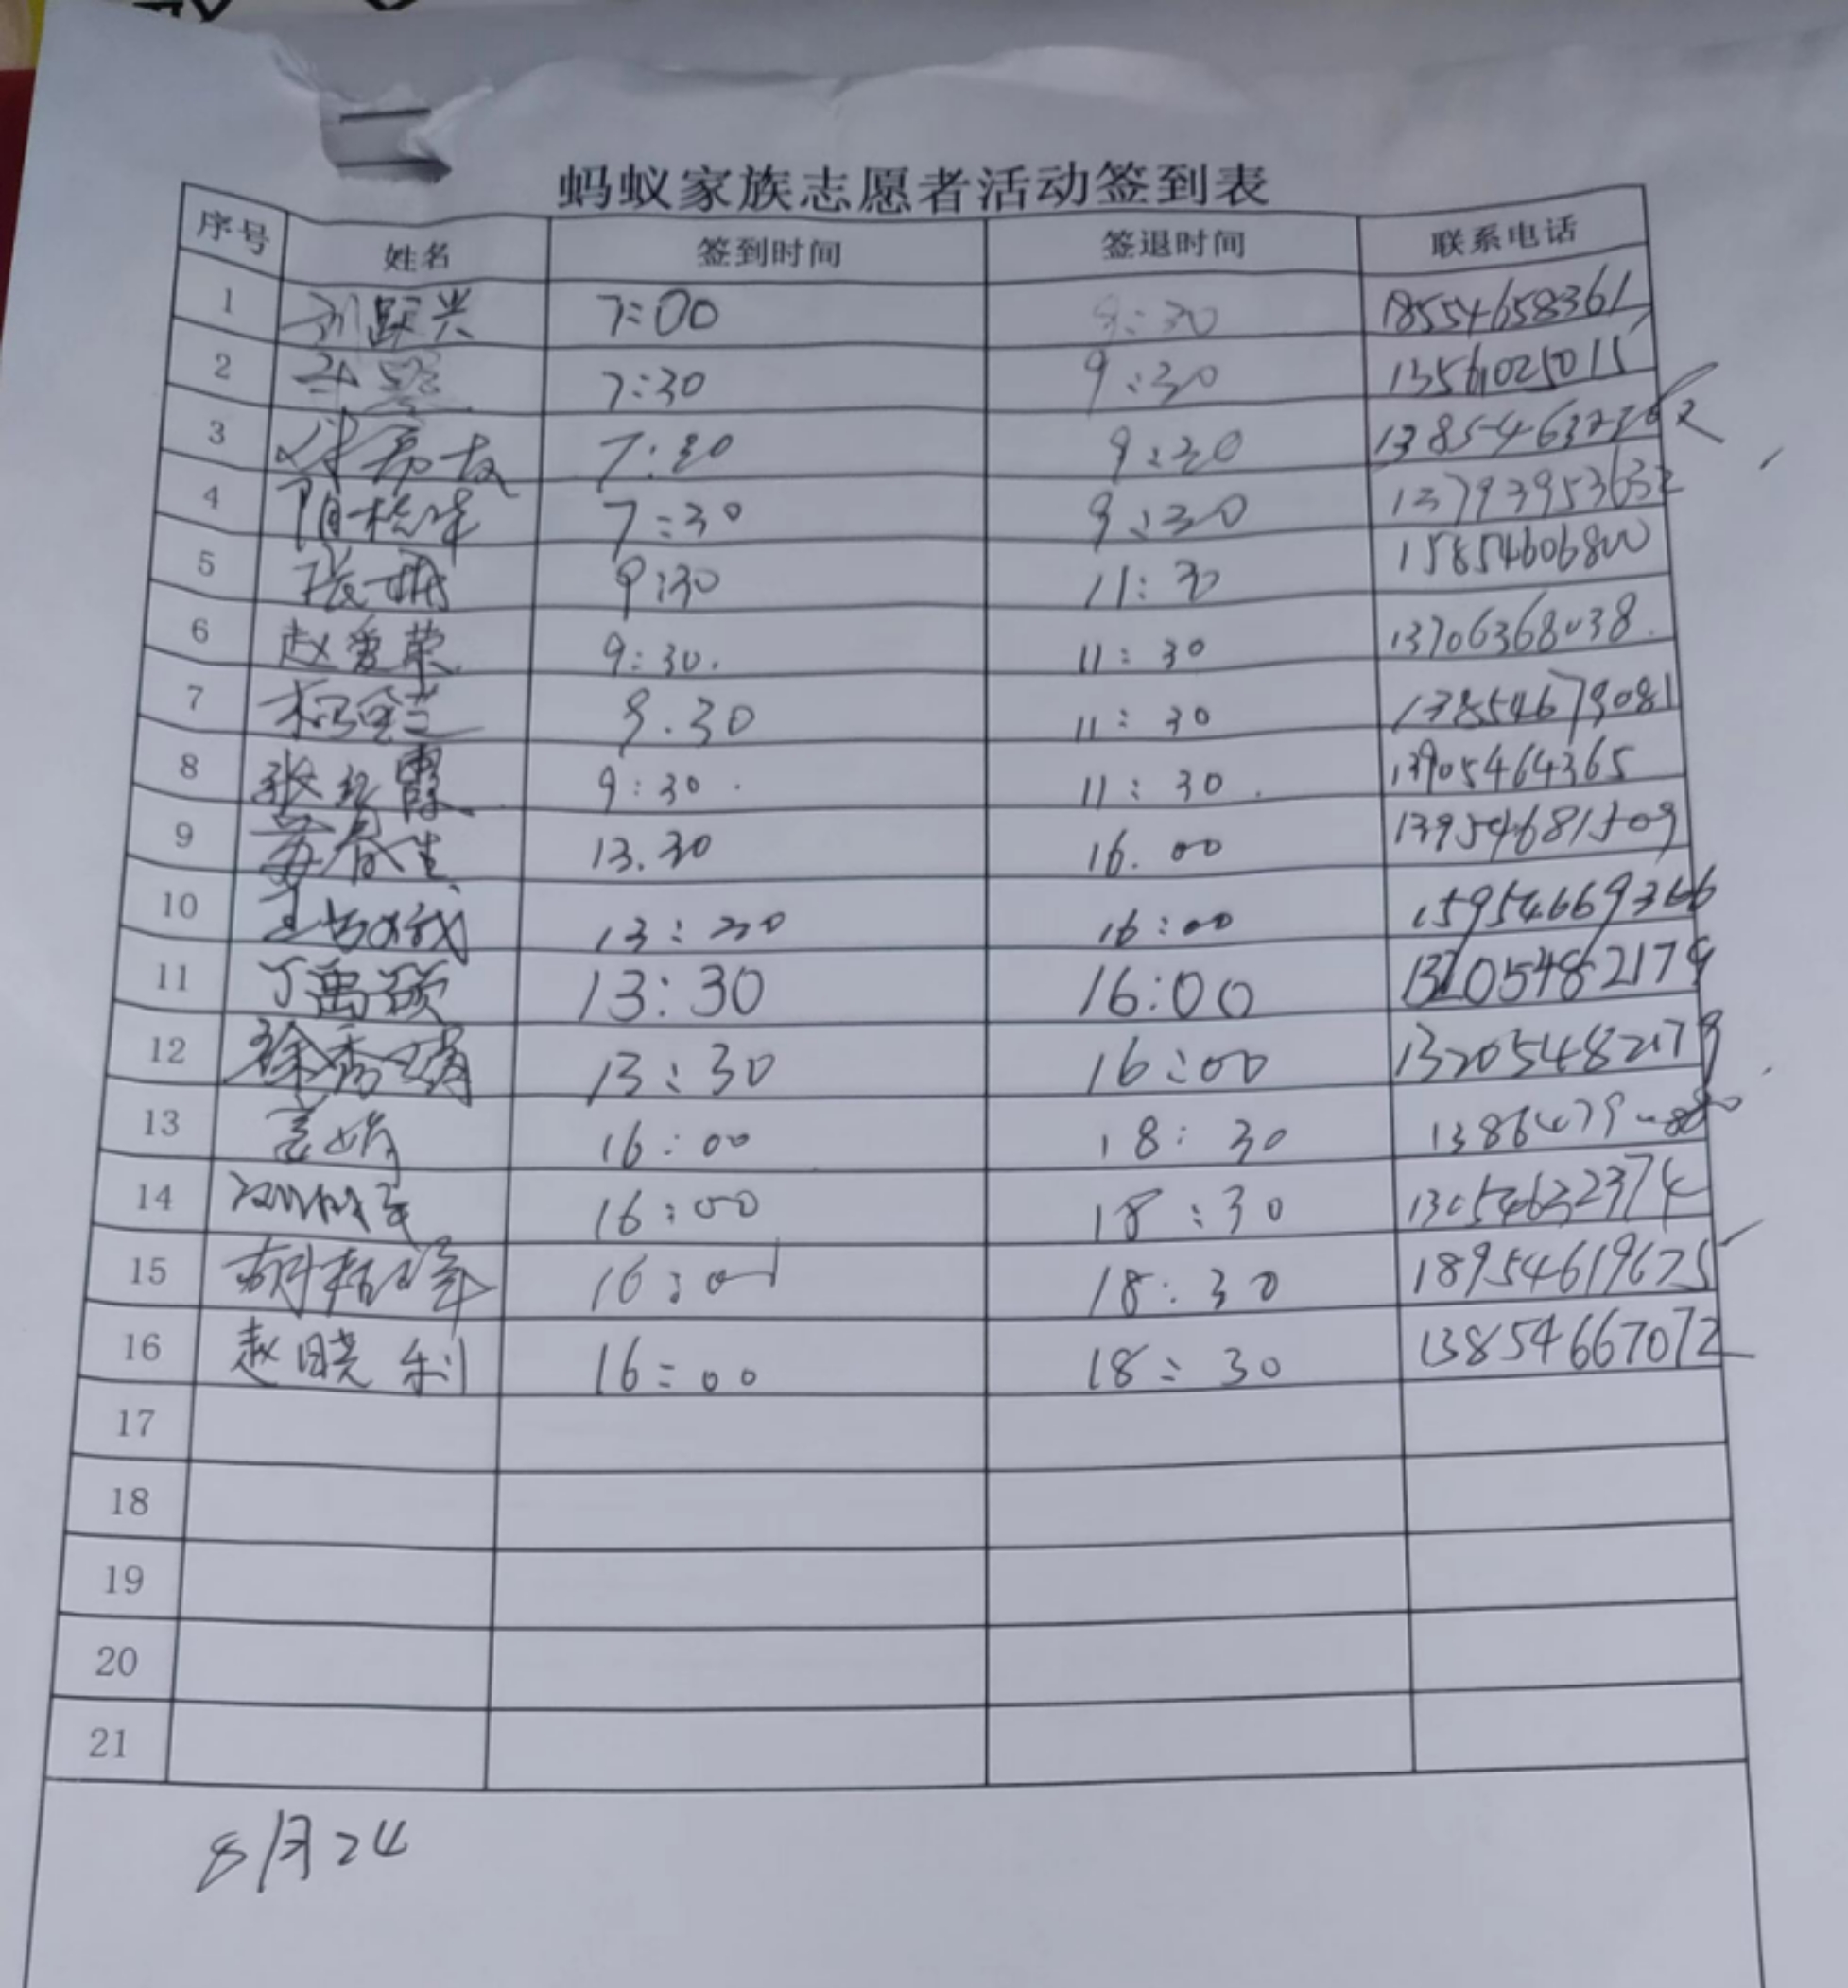 蚂蚁家族志愿者活动签到表
序号 姓名 签到时间 签退时间 联系电话
1 刘跃兴 7:00 9:30 18554658361
2 7:30 9:30 13561025015
3 7:30 9:30
4 7:30 9:30 13793953632
5 9:30 11:30 15854606800
6 赵爱荣 9:30. 11:30 13706368038.
7 9.30 11:30 13854679081
8 张红霞 9:30. 11:30. 13905464365
9 苏春生 13.30 16.00 13954681509
10 13:30 16:00 15954669366
11 丁禹硕 13:30 16:00 13205482179
12 徐秀娟 13:30 16:00 13205482179
13 16:00 18:30
14 16:00 18:30 13054632374
15 16:00 18:30 18954619675
16 赵晓利 16:00 18:30 13854667072
17
18
19
20
21
8月24